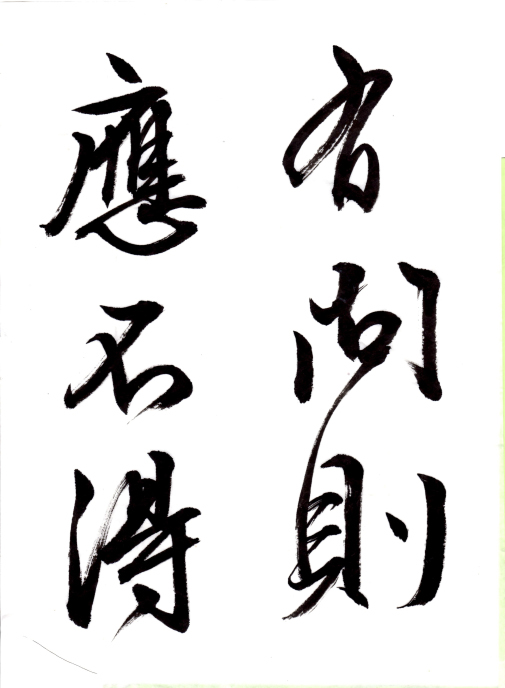 有問則
應不得